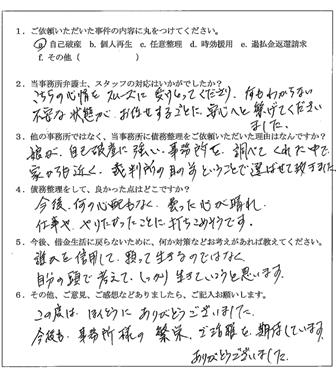 1. ご依頼いただいた事件の内容に丸をつけてください。
a. 自己破産 b. 個人再生 c. 任意整理 d. 時効援用 e. 過払金返還請求
f. その他 ( )
2. 当事務所弁護士、スタッフの対応はいかがでしたか?
こちらの心情をスムーズに受けとってくださり、何もわからない
不安な状態が、お任せすることに安心へと繋げてください
ました。
3. 他の事務所ではなく、当事務所に債務整理をご依頼いただいた理由はなんですか?
娘が、自己破産に強い事務所を、調べてくれた中で
家から近く、裁判所の目の前ということで選ばせて頂きました。
4. 債務整理をして、良かった点はどこですか?
今後、何の心配もなく、曇った心が晴れ
仕事や、やりたかったことに打ちこめそうです。
5. 今後、借金生活に戻らないために、何か対策などお考えがあれば教えてください。
誰かを信用して、頼って生きるのではなく
自分の頭で考えて、しっかり生きていこうと思います。
6. その他、ご意見、ご感想などありましたら、ご記入お願いします。
この度は、ほんとうにありがとうございました。
今後も、事務所様の繁栄、ご活躍を、期待しています
ありがとうございました